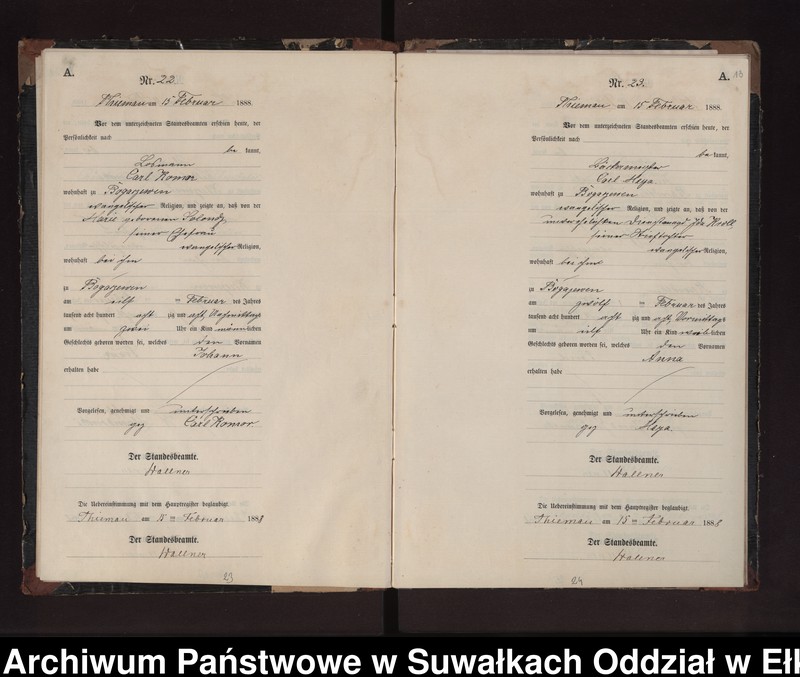 A.
Nr. 22.
Thiemau am 15 Februar 1888.
Vor dem unterzeichneten Standesbeamten erschien heute, der
Persönlichkeit nach
be kannt,
Losmann
Carl Komor
wohnhaft zu Bogaczewen
evangelischer Religion, und zeigte an, daß von der
Marie geborenen
seiner Ehefrau
evangelischer Religion,
wohnhaft bei ihm
zu Bogaczewen
am eilf ten Februar des Jahres
tausend acht hundert acht zig und acht, Nachmittags
um zwei Uhr ein Kind männlichen
Geschlechts geboren worden sei, welches den Vornamen
Johann
erhalten habe
Vorgelesen, genehmigt und unterschrieben
gez Carl Komor
Der Standesbeamte.
Wallner
Die Uebereinstimmung mit dem Hauptregister beglaubigt.
Thiemau am 15 ten Februar 1888
Der Standesbeamte.
Wallner
23
A. 13
Nr. 23.
Thiemau am 15 Februar 1888.
Vor dem unterzeichneten Standesbeamten erschien heute, der
Persönlichkeit nach
be kannt,
Carl Heya
wohnhaft zu Bogaczewen
evangelischer Religion, und zeigte an, daß von der
unverehelichten Dienstmagd Ida
seiner Stieftochter
evangelischer Religion,
wohnhaft bei ihm
zu Bogaczewen
am zwölf ten Februar des Jahres
tausend acht hundert acht zig und acht, Vormittags
um eilf Uhr ein Kind weiblichen
Geschlechts geboren worden sei, welches den Vornamen
Anna
erhalten habe
Vorgelesen, genehmigt und unterschrieben
gez Heya
Der Standesbeamte.
Wallner
Die Uebereinstimmung mit dem Hauptregister beglaubigt.
Thiemau am 15 ten Februar 1888
Der Standesbeamte.
Wallner
24
Archiwum Państwowe w Suwałkach Oddział w Ełk